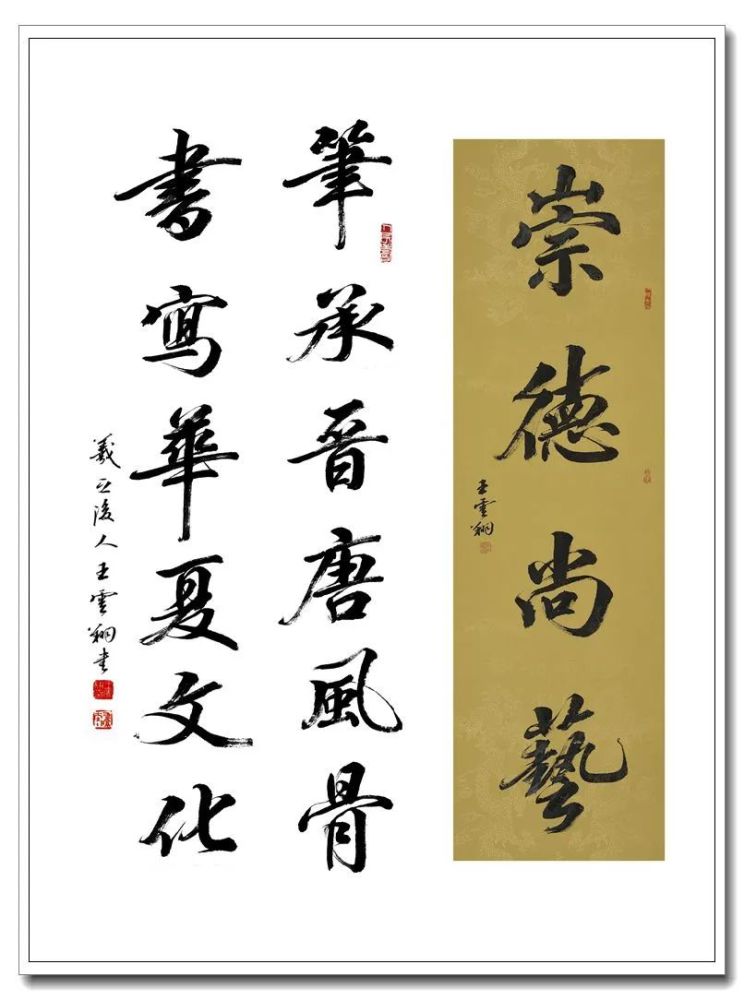 崇德尚藝
王雲翔
筆承晋唐風骨
書寫華夏文化
羲之後人王雲翔书